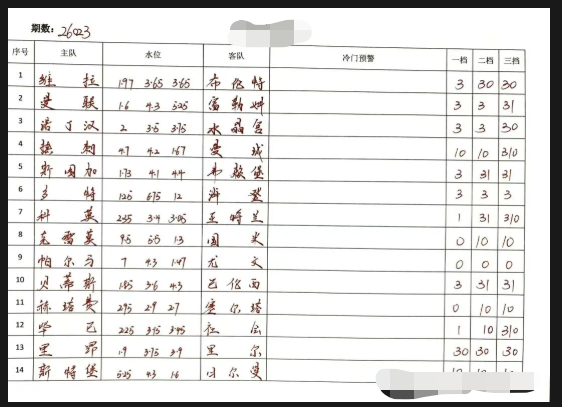 期数: 26023
序号 主队 水位 客队 冷门预警 一档 二档 三档
1 维拉 1.97 3.65 3.65 布伦特 3 30 30
2 曼联 1.6 4.3 5.25 富勒姆 3 3 31
3 诺丁汉 2 3.5 3.75 水晶宫 3 3 30
4 热刺 4.7 4.2 1.67 曼城 10 10 310
5 斯图加 1.73 4.1 4.4 弗赖堡 3 31 31
6 多特 1.25 6.75 12 海登 3 3 3
7 科莫 2.35 3.4 3.05 亚特兰 1 31 310
8 克雷莫 9.5 5.5 1.3 国米 0 10 10
9 帕尔马 7 4.3 1.47 尤文 0 0 0
10 贝蒂斯 1.85 3.6 4.3 巴伦西 3 31 31
11 赫塔费 2.95 2.9 2.7 塞尔塔 0 10 10
12 毕巴 2.25 3.15 3.45 社会 1 10 310
13 里昂 1.9 3.75 3.9 里尔 30 30 30
14 斯特堡 5.25 4.3 1.6 日尔曼